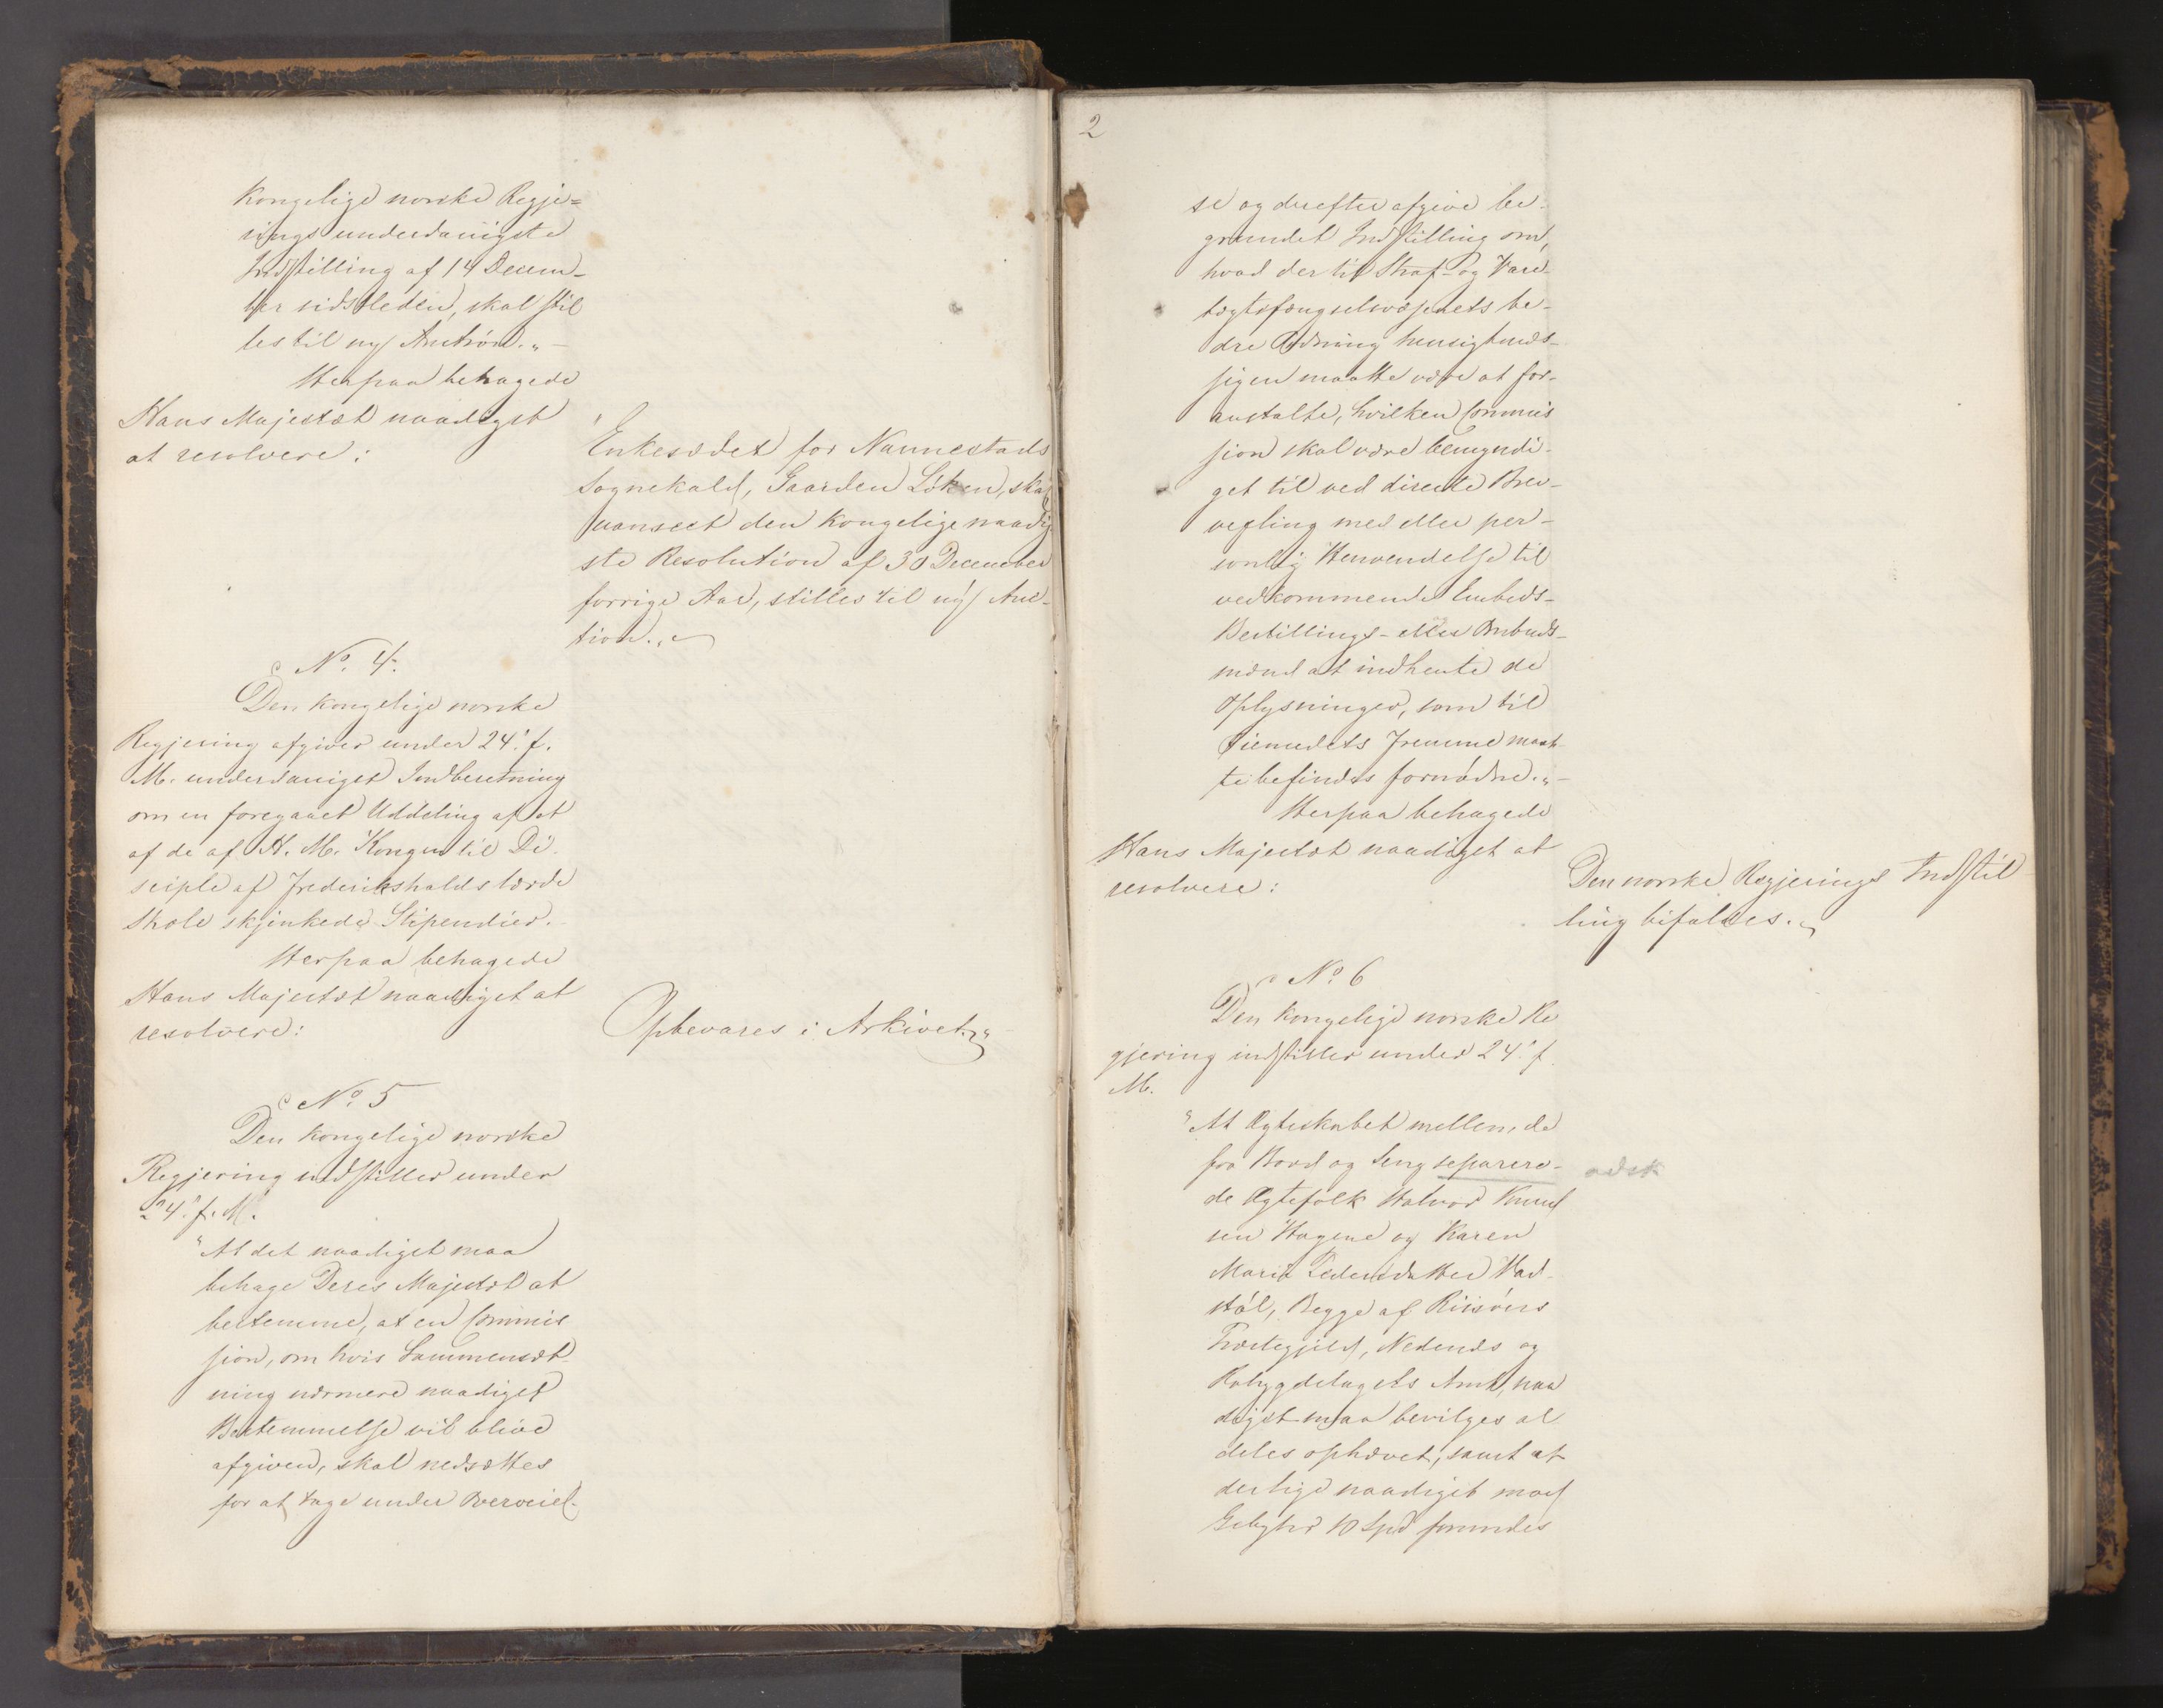 kongelige norske Regje=
rings underdanigste
Indstilling af 14 Decem-
ber sidstleden, skal stil
les til ny Auction."-
Herpaa behagede
Hans Majestæt naadigst
at resolvere:
"Enkesædet for Nannestads
Sognekald, Gaarden Løken, skal
uanseet den kongelige naadig
ste Resolution af 30 December
forrige Aar, stilles til ny Auc-
tion."
No. 4.
Den kongelige norske
Regjering afgiver under 24.' f.
M. underdanigst Indberetning
om en foregaaet Uddeling af et
af de af H. M. Kongen til Di-
sciple af Frederikshalds lærde
Skole skjenkede Stipendier.
Herpaa behagede
Hans Majestæt naadigst at
resolvere:
Opbevares i Arkivet."
No. 5
Den kongelige norske
Regjering indstiller under
24.' f. M.
"At det naadigst maa
behage Deres Majestæt at
bestemme, at en Commis
sion, om hvis Sammensæt-
ning nærmere naadigst
Bestemmelse vil blive
afgiven, skal nedsættes
for at tage under Overveiel-
2
se og derefter afgive be-
grundet Indstilling om,
hvad der til Straf- og Vare-
tægtsfængselsvæsenets be-
dre Ordning hensigtmæs-
sigen maatte være at for-
anstalte, hvilken Commis
sion skal være bemyndi-
get til ved directe Brev-
vexling med eller per-
sonlig Henvendelse til
vedkommende Embeds-
Bestillings- eller Ombuds-
mænd at indhente de
Oplysninger, som til
Øiemedets Fremme maat-
te befindes fornødne."-
Herpaa behagede
Hans Majestæt naadigst at
resolvere:
Den norske Regjerings Indstil
ling bifaldes.
No. 6
Den kongelige norske Re
gjering indstiller under 24.' f.
M.
"At Ægteskabet mellem de
fra Bord og Seng separere-
adsk
de Ægtefolk Halvor Knud
sen Hagene og Karen
Marie Pedersdatter
Begge af Riisørs
Præstegjeld, Nedenæs og
Robygdelagets Amt, naa
digst maa bevilges al
deles ophævet, samt at
derhos naadigst maa
Gebyhr 10 Spd